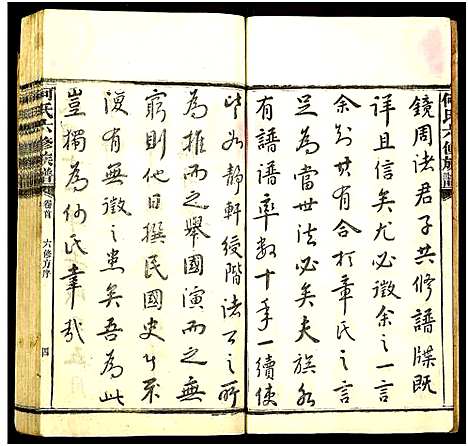 何氏六修族譜
鏡周法君子共修譜牒既
詳且信矣尤必徵余之一言
余幼無有合於章氏之言
是為當世法必矣夫族必
有譜譜率數十年一續使
皆如靜軒綬階法公之所
為推而之舉國演而之無
窮則他日撰民國史者不
復有無徵之患矣吾為此
豈獨為何氏幸哉
何氏六修族譜
卷首
六修方序
四